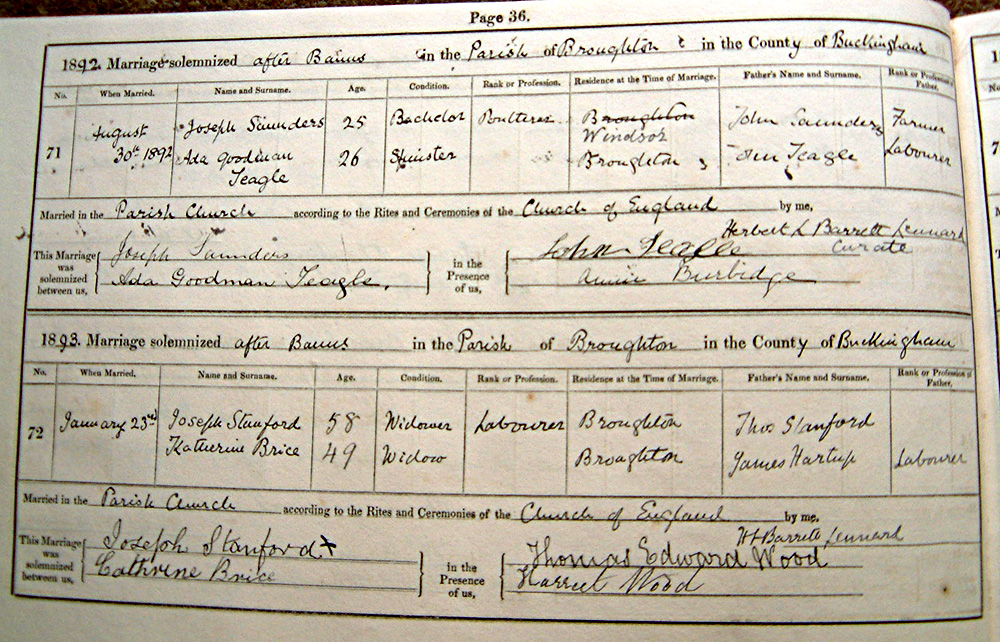 Page 36.
1892. Marriage solemnized after Banns in the Parish of Broughton in the County of Buckingham
No. When Married. Name and Surname. Age. Condition. Rank or Profession. Residence at the Time of Marriage. Father's Name and Surname. Rank or Profession of Father.
71 August 30th 1892 Joseph Saunders 25 Bachelor Broughton John Saunders Farmer
Windsor
Ada Goodman 26 Spinster Broughton John Teagle Labourer
Teagle
Married in the Parish Church according to the Rites and Ceremonies of the Church of England by me,
Herbert L Barrett Lennard
Curate
This Marriage was solemnized between us, Joseph Saunders in the Presence of us, John Teagle
Ada Goodman Teagle. Annie Burbidge
1893. Marriage solemnized after Banns in the Parish of Broughton in the County of Buckingham
No. When Married. Name and Surname. Age. Condition. Rank or Profession. Residence at the Time of Marriage. Father's Name and Surname. Rank or Profession of Father.
72 January 23rd Joseph Stanford 58 Widower Labourer Broughton Thos Stanford
Katherine Brice 49 Widow Broughton James Hartup Labourer
Married in the Parish Church according to the Rites and Ceremonies of the Church of England by me,
H L Barrett Lennard
This Marriage was solemnized between us, Joseph Stanford in the Presence of us, Thomas Edward Wood
Cathrine Brice Harriet Wood